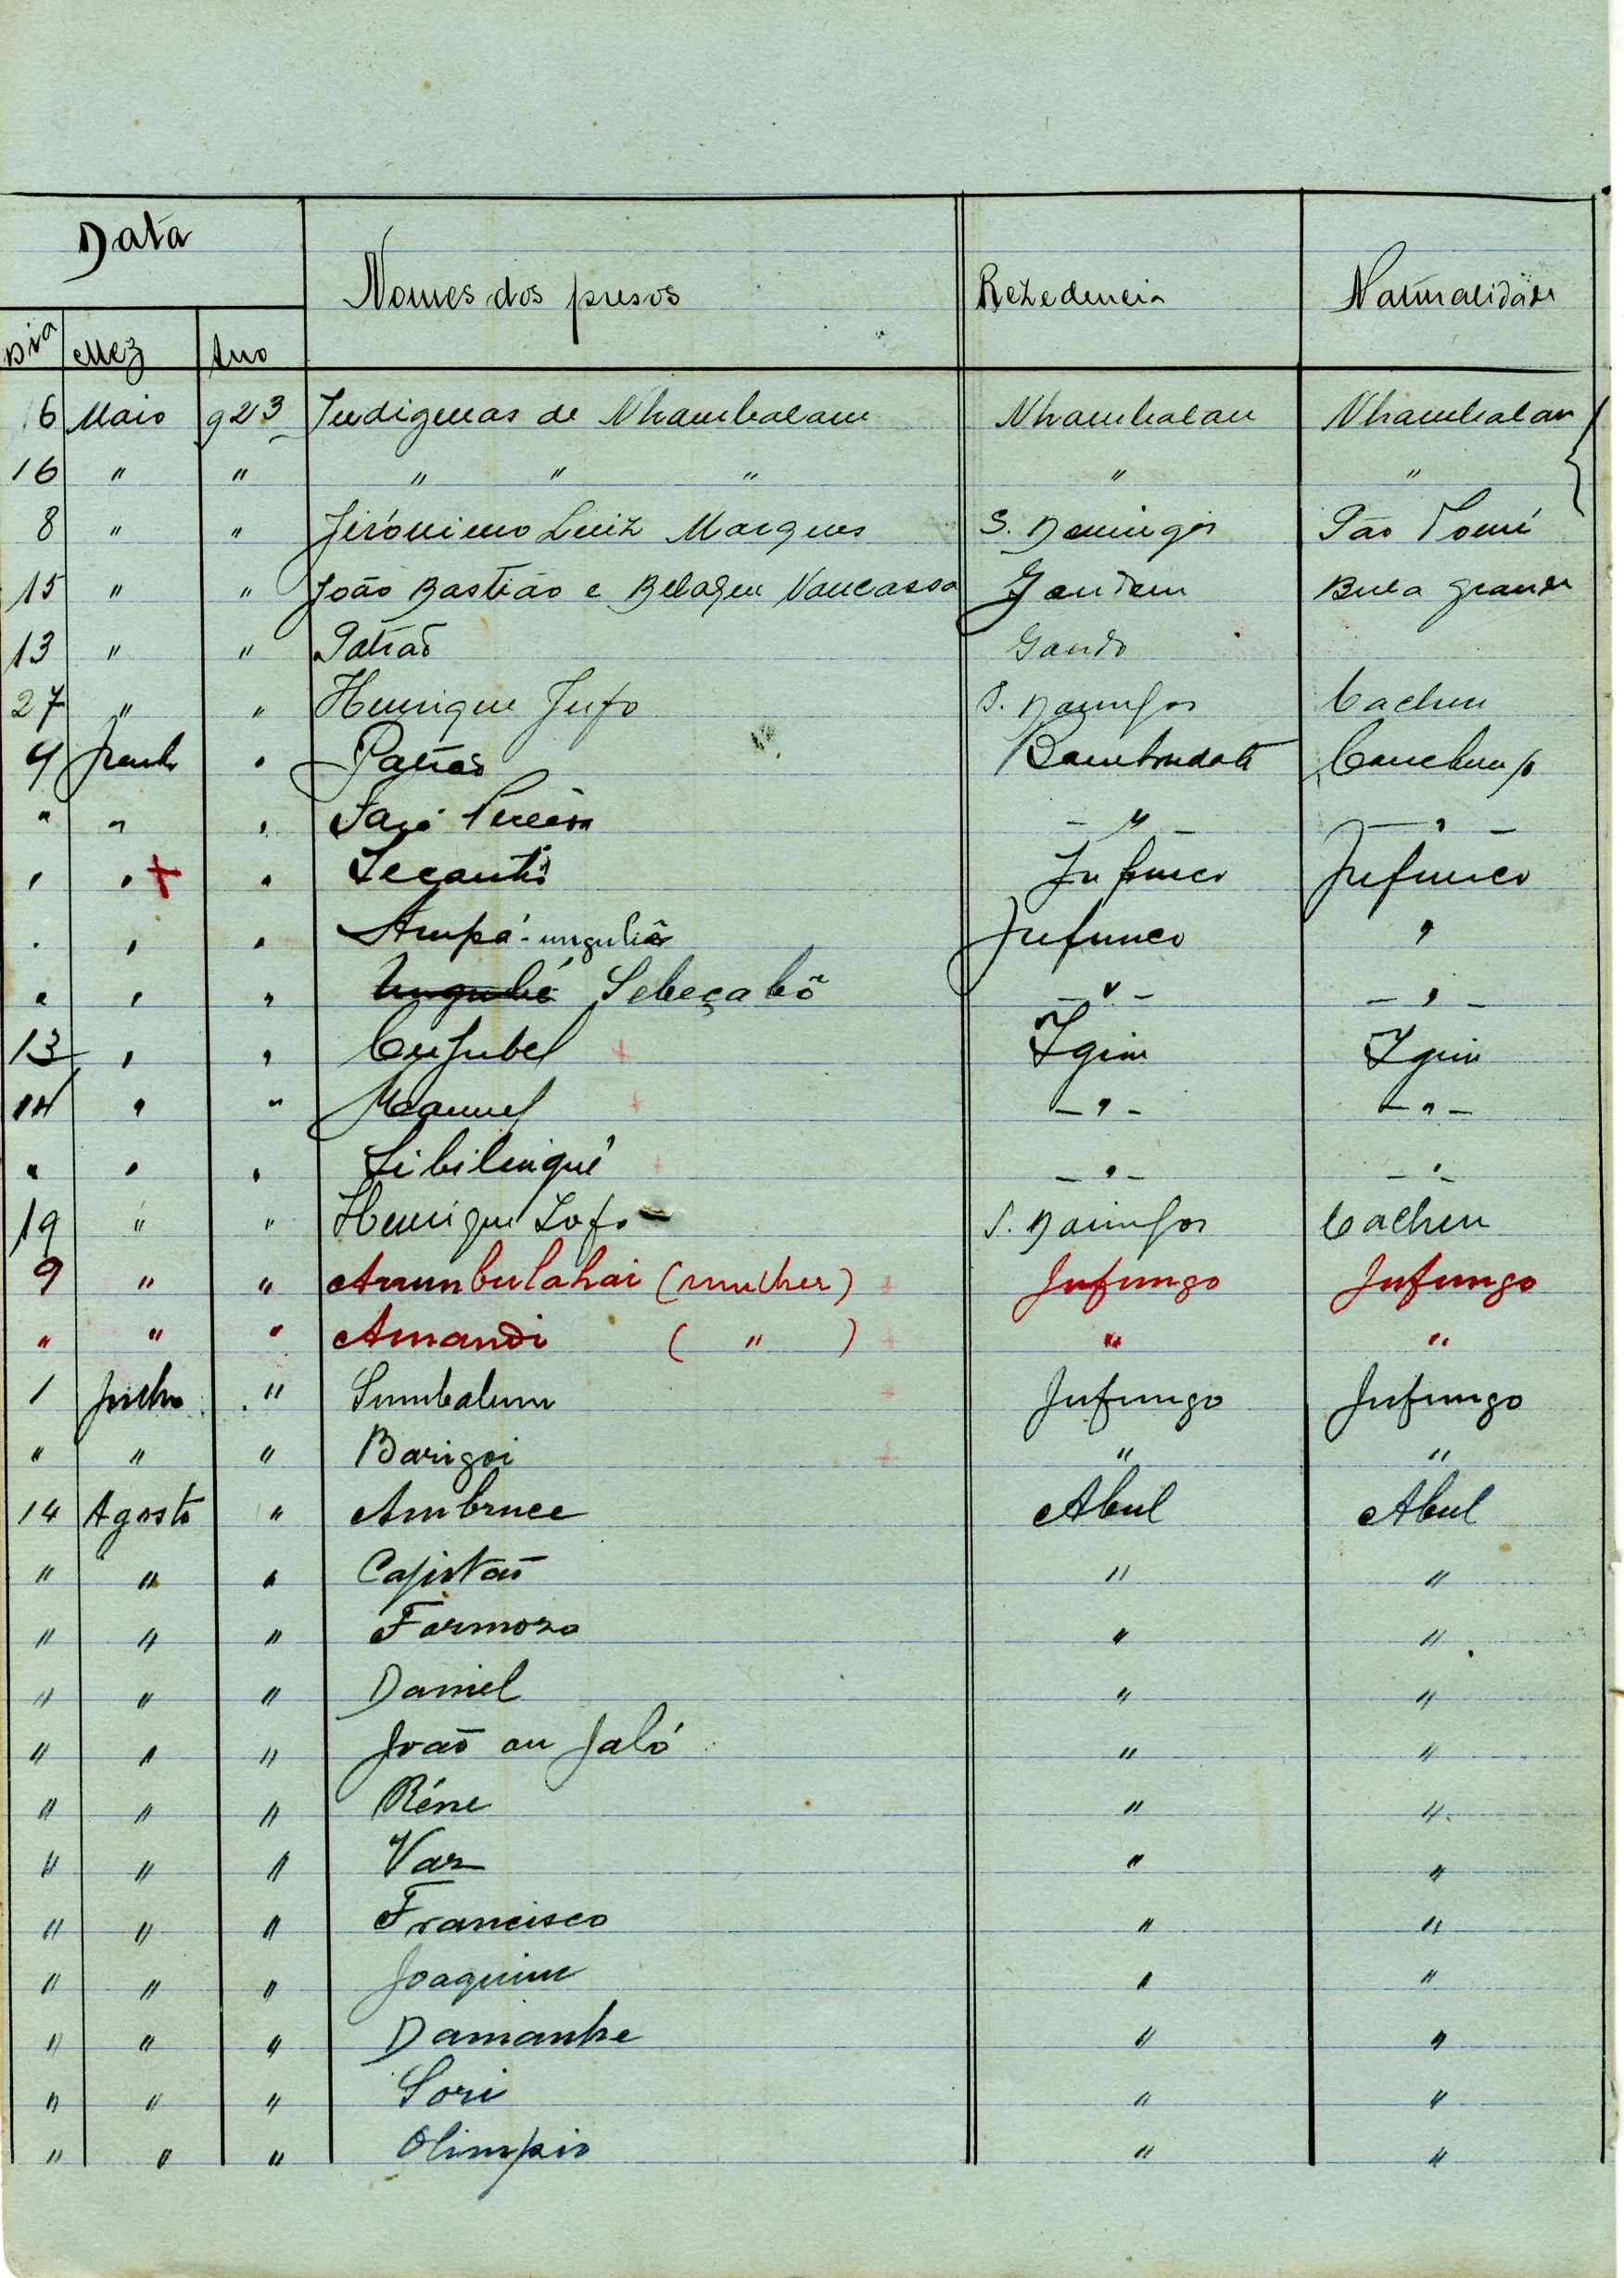 Data
Nomes dos presos Rezedencia Naturalidade
Dia Mez Ano
6 Maio 923 Indigenas de Nhambalam Nhambalan Nhambalan
16 " " " " " " "
8 " " Jirónimo Luiz Marques S. Domingos São Tomé
15 " " João Bastião e Belagen Vancassa Jandem Bula grande
13 " " Patrão Gando
27 " " Henrique Jufo S. Domingos Cacheu
4 Junho " Patrão Bambudata
" " " Pereira — " — — " —
" " + " Jufunco Jufunco
" " " Ampá-unguliá Jufunco "
" " " Sebeçabô — " — — " —
13 " " + Igim Igim
14 " " Manuel + — " — — " —
" " " Libilingué + — " — — " —
19 " " Henrique Lofo S. Domingos Cacheu
9 " " Amumbulahai (mulher) + Jufungo Jufungo
" " " Amandi ( " ) + " "
1 Julho " Sumbalum + Jufungo Jufungo
" " " Barigoi + " "
14 Agosto " Ambruce Abul Abul
" " " Capistão " "
" " " Formozo " "
" " " Daniel " "
" " " João ou Jaló " "
" " " Réne " "
" " " Vaz " "
" " " Francisco " "
" " " Joaquim " "
" " " Damanhe " "
" " " Sori " "
" " " Olimpio " "